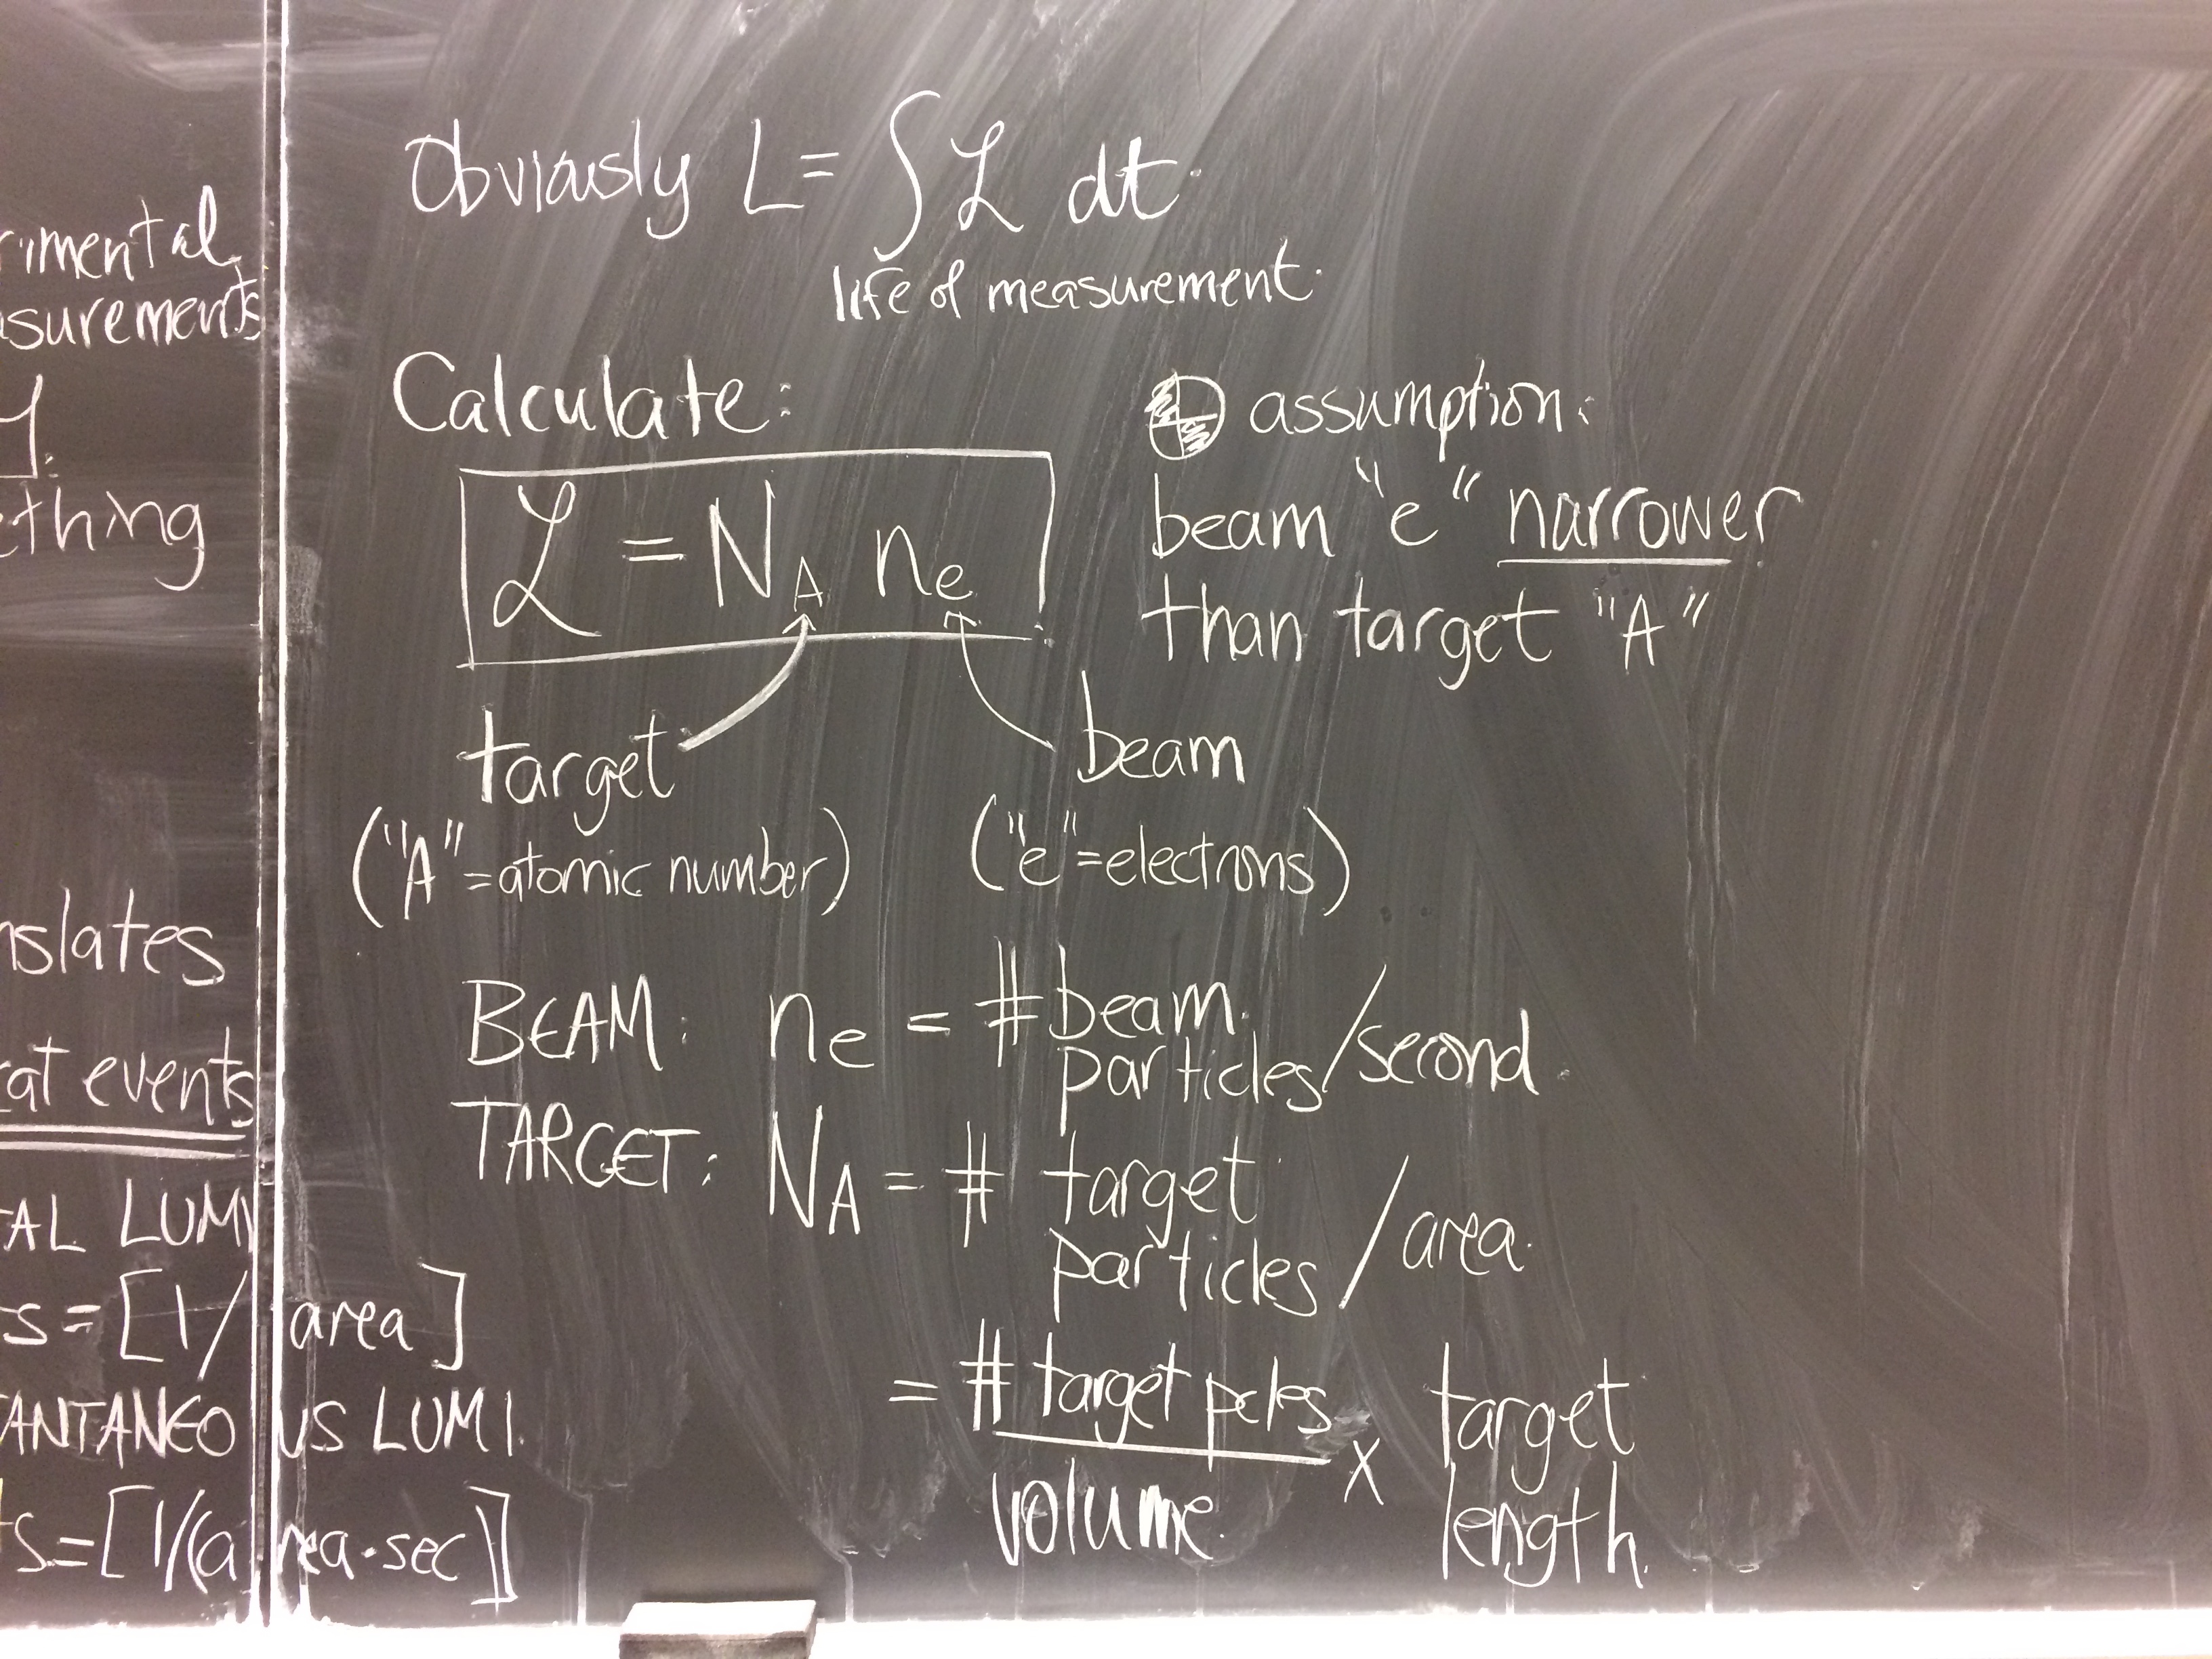 rimental
asurements
ething
nslates
at events
AL LUMI
s = [1/area]
TANTANEOUS LUMI
ts = [1/(area·sec)]
Obviously L = ∫ ℒ dt.
life of measurement.
Calculate:
ℒ = N_A n_e
target
beam
("A" = atomic number)
("e" = electrons)
assumption:
beam "e" narrower
than target "A"
BEAM: n_e = # beam particles / second.
TARGET: N_A = # target particles / area.
= # target pcles / volume x target length.